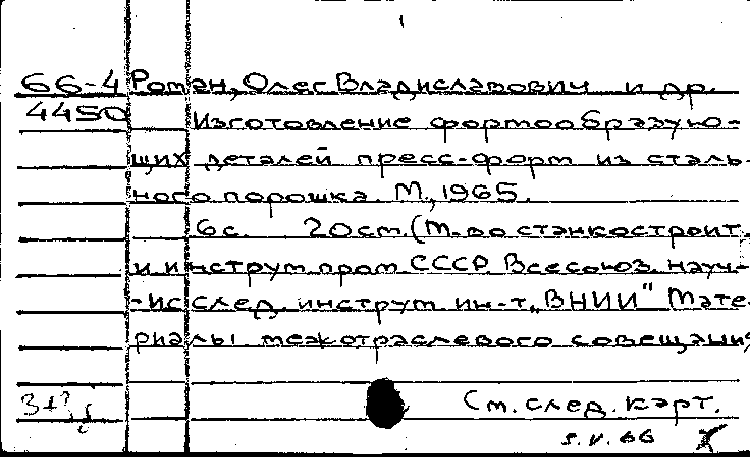 1
66-4 Роман, Олег Владиславович и др.
4450 Изготовление формообразую-
щих деталей пресс-форм из сталь-
ного порошка. М., 1965.
6 с. 20 см. (М-во станкостроит.
и инструм. пром. СССР. Всесоюз. науч-
-исслед. инструм. ин-т „ВНИИ" Мате-
риалы межотраслевого совещания
См. след. карт.
5.V.66